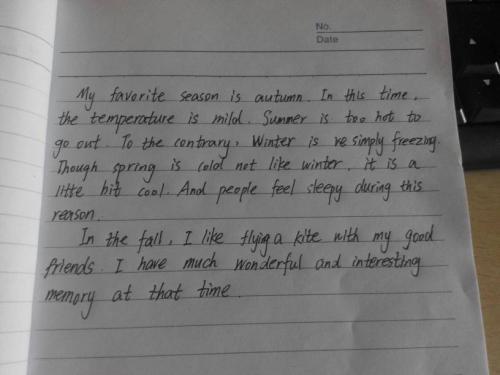 No.
Date
My favorite season is autumn. In this time,
the temperature is mild. Summer is too hot to
go out. To the contrary, Winter is re simply freezing.
Though spring is cold not like winter, it is a
little bit cool. And people feel sleepy during this
reason.
In the fall, I like flying a kite with my good
friends. I have much wonderful and interesting
memory at that time.